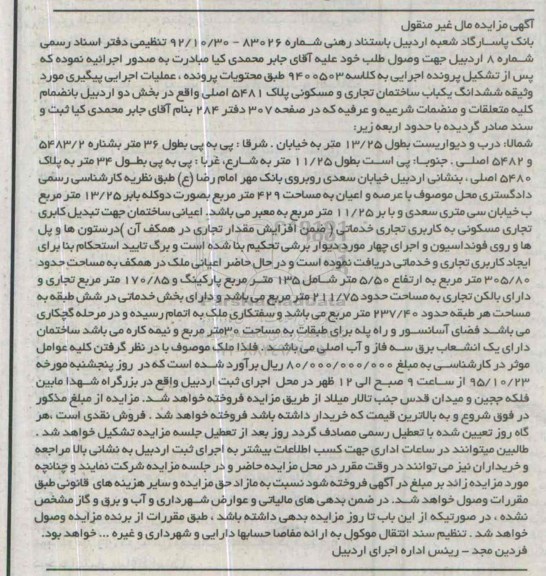 آگهی مزایده مال غیر منقول
بانک پاسارگاد شعبه اردبیل باستناد رهنی شماره ۸۳۰۲۶ - ۹۲/۱۰/۳۰ تنظیمی دفتر اسناد رسمی
شماره ۸ اردبیل جهت وصول طلب خود علیه آقای جابر محمدی کیا مبادرت به صدور اجرائیه نموده که
پس از تشکیل پرونده اجرایی به کلاسه ۹۴۰۰۵۰۳ طبق محتویات پرونده ، عملیات اجرایی پیگیری مورد
وثیقه ششدانگ یکباب ساختمان تجاری و مسکونی پلاک ۵۴۸۱ اصلی واقع در بخش دو اردبیل بانضمام
کلیه متعلقات و منضمات شرعیه و عرفیه که در صفحه ۳۰۷ دفتر ۲۸۴ بنام آقای جابر محمدی کیا ثبت و
سند صادر گردیده با حدود اربعه زیر:
شمالا: درب و دیواریست بطول ۱۳/۲۵ متر به خیابان . شرقا : پی به پی بطول ۳۶ متر بشناره ۵۴۸۳/۲
و ۵۴۸۲ اصلی . جنوبا: پی است بطول ۱۱/۲۵ متر به شارع، غربا : پی به پی بطول ۳۴ متر به پلاک
۵۴۸۰ اصلی ، بنشانی اردبیل خیابان سعدی روبروی بانک مهر امام رضا (ع) طبق نظریه کارشناسی رسمی
دادگستری محل موصوف با عرصه و اعیان به مساحت ۴۲۹ متر مربع بصورت دوکله بابر ۱۳/۲۵ متر مربع
ب خیابان سی متری سعدی و با بر ۱۱/۲۵ متر مربع به معبر می باشد. اعیانی ساختمان جهت تبدیل کابری
تجاری مسکونی به کاربری تجاری خدماتی (ضمن افزایش مقدار تجاری در همکف آن )درستون ها و پل
ها و روی فونداسیون و اجرای چهار مورد دیوار برشی تحکیم بنا شده است و برگ تایید استحکام بنا برای
ایجاد کاربری تجاری و خدماتی دریافت نموده است و در حال حاضر اعیانی ملک در همکف به مساحت حدود
۳۰۵/۸۰ متر مربع به ارتفاع ۵/۵۰ متر شامل ۱۳۵ متر مربع پارکینگ و ۱۷۰/۸۵ متر مربع تجاری و
دارای بالکن تجاری به مساحت حدود ۲۱۱/۷۵ متر مربع می باشد و دارای بخش خدماتی در شش طبقه به
مساحت هر طبقه حدود ۲۳۷/۴۰ متر مربع می باشد و سفتکاری ملک به اتمام رسیده و در مرحله گچکاری
می باشد فضای آسانسور و راه پله برای طبقات به مساحت ۳۰متر مربع و نیمه کاره می باشد ساختمان
دارای یک انشعاب برق سه فاز و آب اصلی می باشد . فلذا ملک موصوف با در نظر گرفتن کلیه عوامل
موثر در کارشناسی به مبلغ ۸۰/۰۰۰/۰۰۰/۰۰۰ ریال برآورد شده است که در روز پنجشنبه مورخه
۹۵/۱۰/۲۳ از ساعت ۹ صبح الی ۱۲ ظهر در محل اجرای ثبت اردبیل واقع در بزرگراه شهدا مابین
فلکه ججین و میدان قدس جنب تالار میلاد از طریق مزایده فروخته خواهد شد. مزایده از مبلغ مذکور
در فوق شروع و به بالاترین قیمت که خریدار داشته باشد فروخته خواهد شد . فروش نقدی است ،هر
گاه روز تعیین شده با تعطیل رسمی مصادف گردد روز بعد از تعطیل جلسه مزایده تشکیل خواهد شد .
طالبین میتوانند در ساعات اداری جهت کسب اطلاعات بیشتر به اجرای ثبت اردبیل به نشانی بالا مراجعه
و خریداران نیز می توانند در وقت مقرر در محل مزایده حاضر و در جلسه مزایده شرکت نمایند و چنانچه
مورد مزایده زائد بر مبلغ در آگهی فروخته شود نسبت به مازاد حق مزایده و سایر هزینه های قانونی طبق
مقررات وصول خواهد شد. در ضمن بدهی های مالیاتی و عوارض شهرداری و آب و برق و گاز مشخص
نشده ، در صورتیکه از این باب تا روز مزایده بدهی داشته باشد ، طبق مقررات از برنده مزایده وصول
خواهد شد . تنظیم سند انتقال موکول به ارائه مفاصا حسابها دارایی و شهرداری و غیره ... خواهد بود.
فردین مجد - رییس اداره اجرای اردبیل